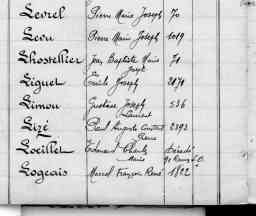 Levrel Pierre Marie Joseph 70
Levu Pierre Marie Joseph 1019
Lhostellier Jean Baptiste Marie 71
Joseph
Liguet Emile Joseph 2171
Limou Gustave Joseph 536
Laurent
Lizé Paul Auguste Constant 2393
Pierre
Loeillet Edouard Charles
Marie
Logeais Marcel François René 1822